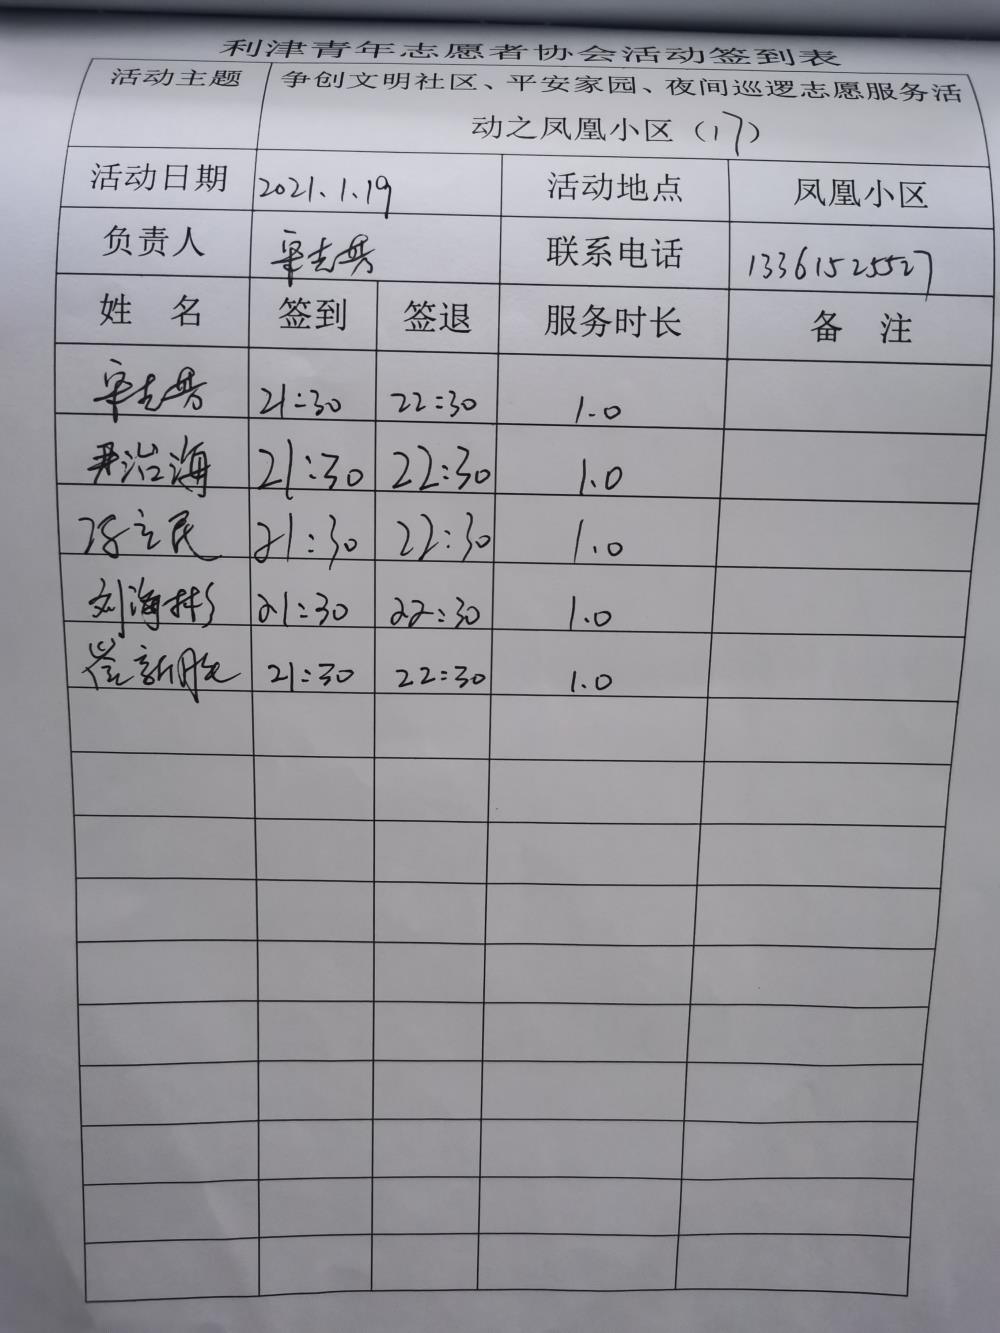 利津青年志愿者协会活动签到表
活动主题 争创文明社区、平安家园、夜间巡逻志愿服务活
动之凤凰小区（17）
活动日期 2021.1.19 活动地点 凤凰小区
负责人 联系电话 13361525527
姓 名 签到 签退 服务时长 备 注
21:30 22:30 1.0
尹治海 21:30 22:30 1.0
立民 21:30 22:30 1.0
刘海彬 21:30 22:30 1.0
崔新 21:30 22:30 1.0